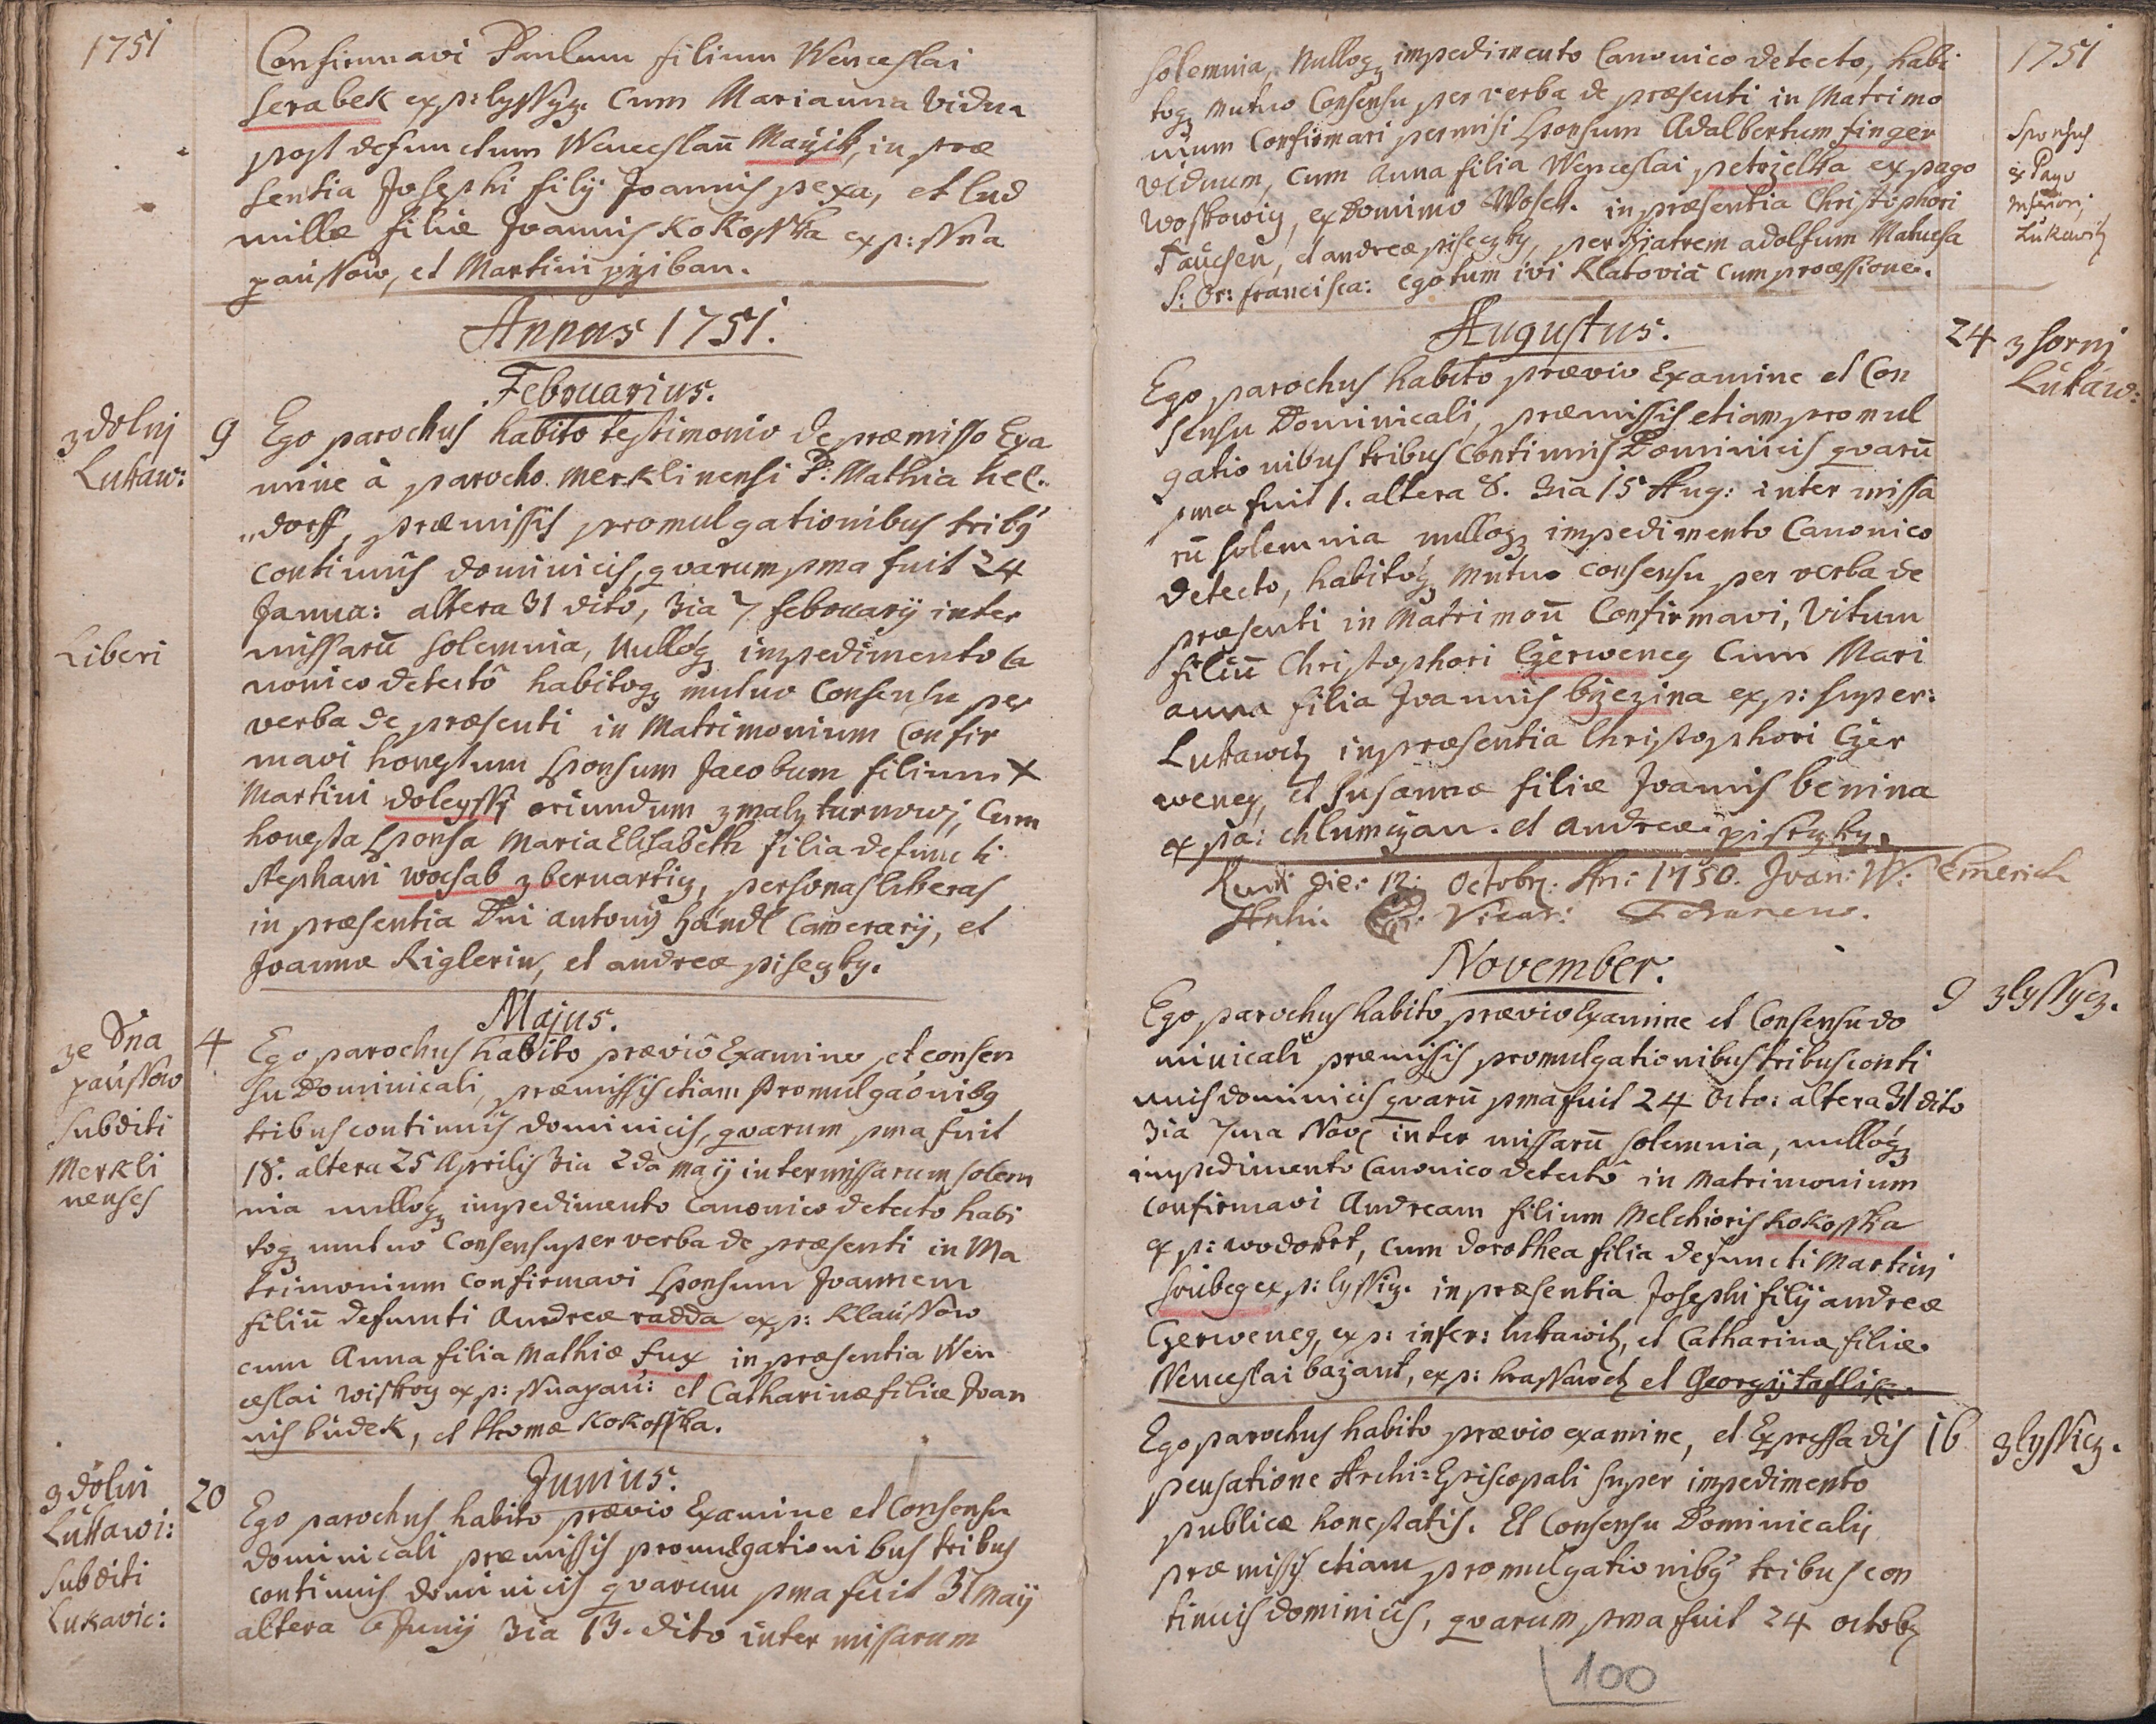 1751
Confirmavi Paulum filium Wenceslai
serabek ex p: lyssyz. cum Marianna Vidua
post defunctum Wenceslau Mayik, in præ
sentia Josephi filij Joannis pexa, et lud
millæ filiæ Joannis KoKosska ex p: Sna
paussow, et Martini pziban.
Annus 1751.
Februarius.
z dolnj
Lukaw:
9
Ego parochus habito testimonio de præmisso Exa
mine à parocho merklinensi P: Mathia hel„
„dorff, præmissis promulgationibus tribq
continuis dominicis, qvarum pma fuit 24
Janua: altera 31 dito, 3ia 7 februarij inter
Liberi
missarū solemnia, nulloq impedimento ca
nonico detectô habitoq mutuo Consensu per
verba de præsenti in Matrimonium Confir
mavi honestum sponsum Jacobum filium X
Martini doleyssi oriundum z maly turnowj, Cum
honesta sponsa Maria Elisabeth filia defuncti
Stephani wocsab z bernartiz, personas liberas
in præsentia Dni antonij händl Camerarij, et
Joannæ Riglerin, et andreæ pisezky.
Majus.
ze Sna
paussow
subditi
Merkli
nenses
4
Ego parochus habito præviô Examine et consen
su Dominicali, præmissis etiam Promulgaônibq
tribus continuis dominicis, qvarum pma fuit
18. altera 25 Aprilis 3ia 2da maij inter missarum solem
nia nulloq impedimento Canonico detecto habi
toq mutuo Consensu per verba de præsenti in Ma
trimonium confirmavi sponsum Joannem
filiū defuncti Andreæ radda ex p: Klaussow
cum Anna filia Mathiæ fux in præsentia Wen
ceslai wiskoz ex p: Snapau: et Catharinæ filiæ Joan
nis budek, et thomæ KoKosska.
Junius.
z dolni
Lukawi:
subditi
Lukavic:
20
Ego parochus habito prævio Examine et Consensu
dominicali præmissis promulgationibus tribus
continuis dominicis qvarum pma fuit 31 maij
altera 6 Junij 3ia 13. dito inter missarum
1751
solemnia, nulloq impedimento Canonico detecto, habi
toq mutuo Consensu per verba de præsenti in Matrimo
nium Confirmari permisi sponsum Adalbertum finger
viduum, cum Anna filia Wenceslai petrzelka ex pago
woskowiz, ex Dominio Wosek. in præsentia Christophori
Pauchen, et andreæ pisezky, per Fratrem adolfum Matuesa
S: Or: francisca: ego tum ivi Klatoviā cum processione.
Sponsus
ex Pago
Inferiori
Lukawitz
Augustus.
24 z hornj
Lukaw:
Ego parochus habito prævio Examine et Con
sensu Dominicali, præmissis etiam promul
gationibus tribus Continuis Dominicis qvarū
pma fuit 1. altera 8. 3ia 15 Aug: inter missa
rū solemnia nulloq impedimento Canonico
detecto, habitoq mutuo consensu per verba de
præsenti in Matrimoū Confirmavi, Vitum
filiū Christophori Czerweney Cum Mari
anna filia Joannis bzezina ex p: super:
Lukawitz in præsentia Christophori Czer
weney, et Susannæ filiæ Joannis benina
ex pa: chlumczan. et andreæ pisezky.
die: 12: Octobr: An: 1750. Joan: W: Emerich
Vicar:
November.
9 z lyssycz.
Ego parochus habito prævio Examine et Consensu do
minicali præmissis promulgationibus tribus conti
nuis dominicis qvarū pma fuit 24 Octo: altera 31 dito
3ia 7ma Nov inter missarū solemnia, nulloq
impedimento Canonico detectô in Matrimonium
confirmavi Andream filium Melchioris KoKosska
ex p: wodokrt, cum dorothea filia defuncti Martini
ex p: lyssiz. in præsentia Josephi filij andreæ
Czerweney, ex p: infer: lukawitz, et Catharinæ filiæ
Wenceslai bazant, ex p: krassawetz et Georgij taflik.
16 z lyssicz.
Ego parochus habito prævio examine, et Expressa dis
pensatione Archi=Episcopali super impedimento
publicæ honestatis. Et Consensu Dominicali,
præmissis etiam promulgationibq tribus con
tinuis dominicis, qvarum pma fuit 24 octob
100